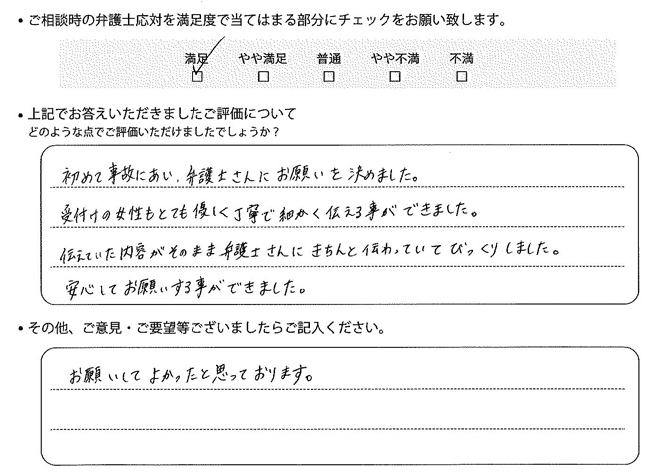 • ご相談時の弁護士応対を満足度で当てはまる部分にチェックをお願い致します。
満足 やや満足 普通 やや不満 不満
☑ □ □ □ □
• 上記でお答えいただきましたご評価について
どのような点でご評価いただけましたでしょうか？
初めて事故にあい、弁護士さんにお願いを決めました。
受付けの女性もとても優しく丁寧で細かく伝える事ができました。
伝えていた内容がそのまま弁護士さんにきちんと伝わっていてびっくりしました。
安心してお願いする事ができました。
• その他、ご意見・ご要望等ございましたらご記入ください。
お願いしてよかったと思っております。